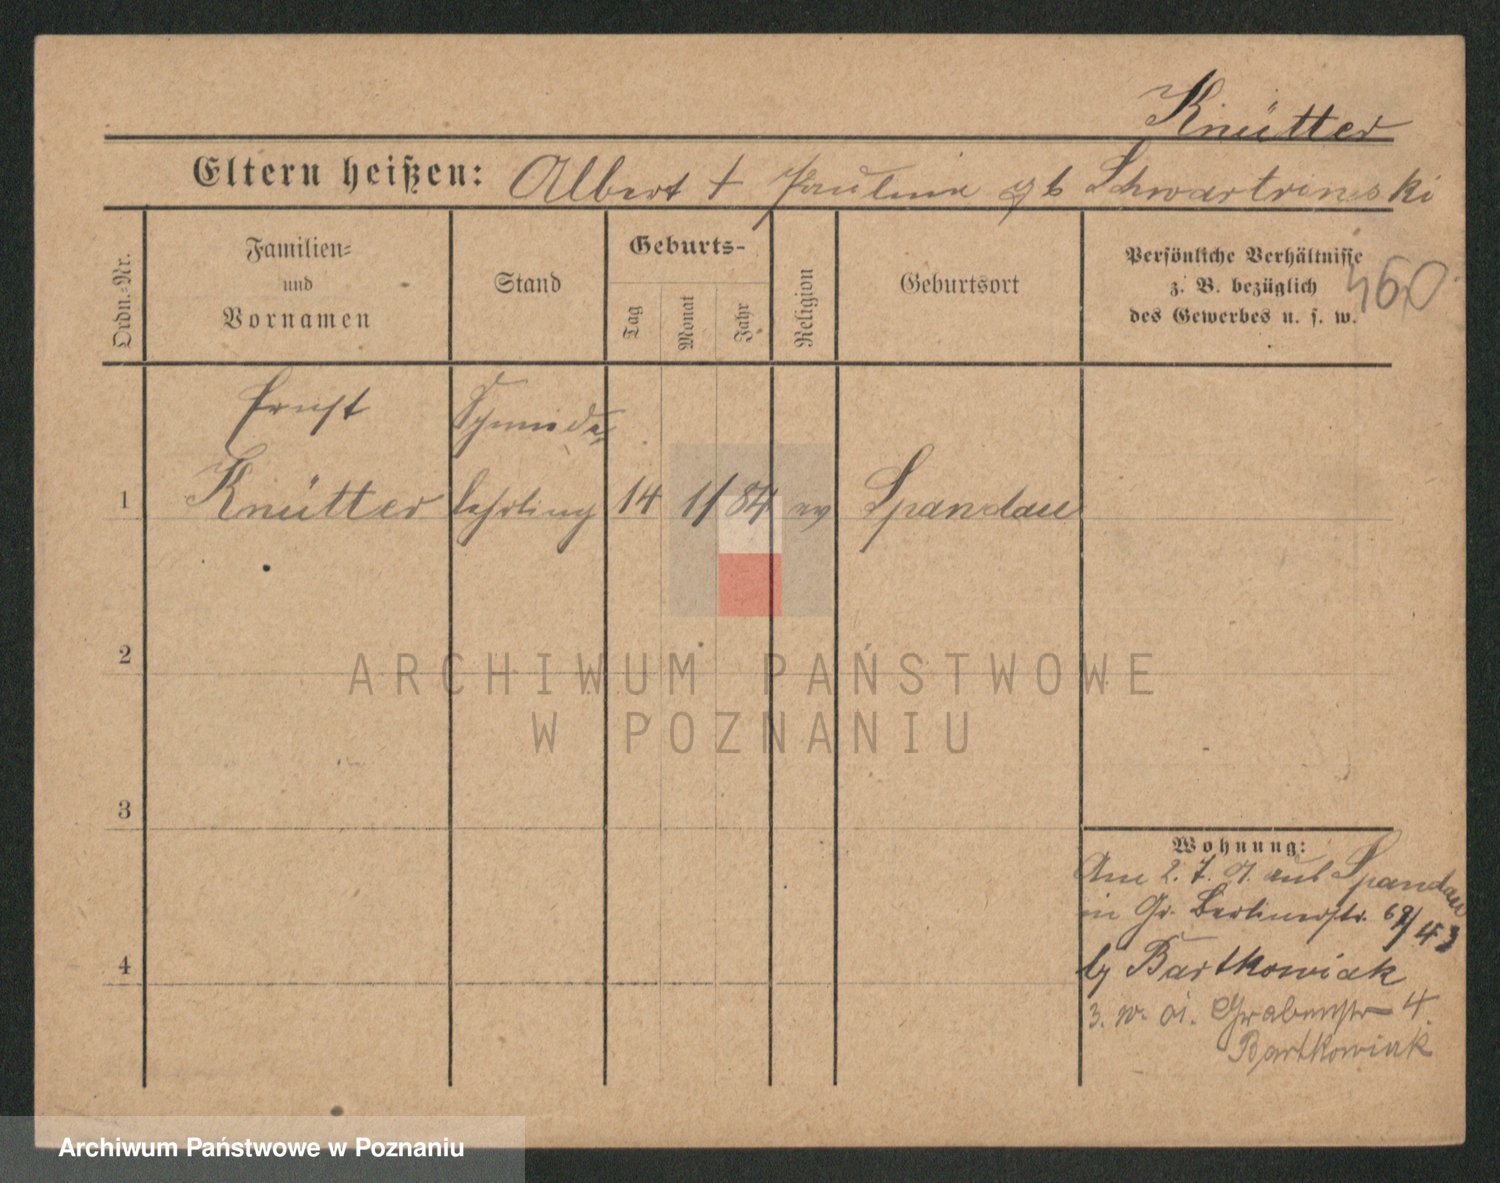 Knütter
Eltern heißen: Albert + Pauline gb Schwartrinski
Ordn.-Nr.
Familien-
und
Vornamen
Stand
Geburts-
Tag
Monat
Jahr
Religion
Geburtsort
Persönliche Verhältnisse
z. B. bezüglich
des Gewerbes u. s. w.
460
Ernst Schmiede
1 Knütter lehrling 14 11 84 ev Spandau
2
3
4
Wohnung:
Am 2. 7. 01. aus Spandau
in Gr. Berlinerstr. 69/43
bj Bartkowiak
3. 10. 01. Grabenstr 4.
Bartkowiak
ARCHIWUM PAŃSTWOWE
W POZNANIU
Archiwum Państwowe w Poznaniu